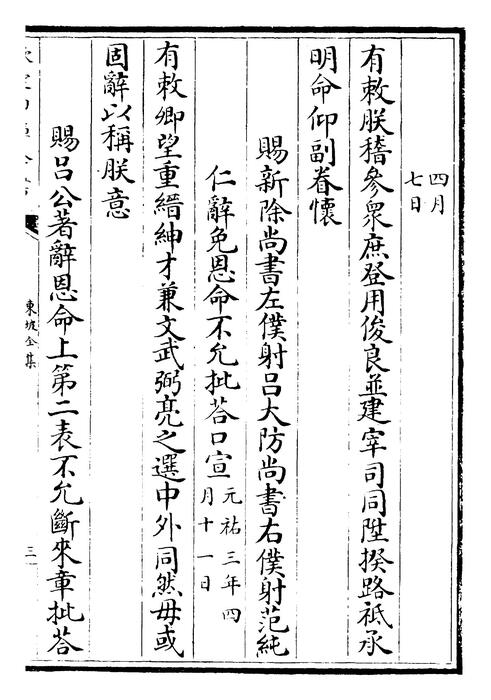 四月
七日
有敕朕稽參衆庶登用俊良並建宰司同陞揆路祗承
明命仰副眷懷
賜新除尚書左僕射呂大防尚書右僕射范純
仁辭免恩命不允批荅口宣元祐三年四
月十一日
有敕卿望重縉紳才兼文武弼亮之選中外同然毋或
固辭以稱朕意
賜呂公著辭恩命上第二表不允斷來章批荅
東坡全集